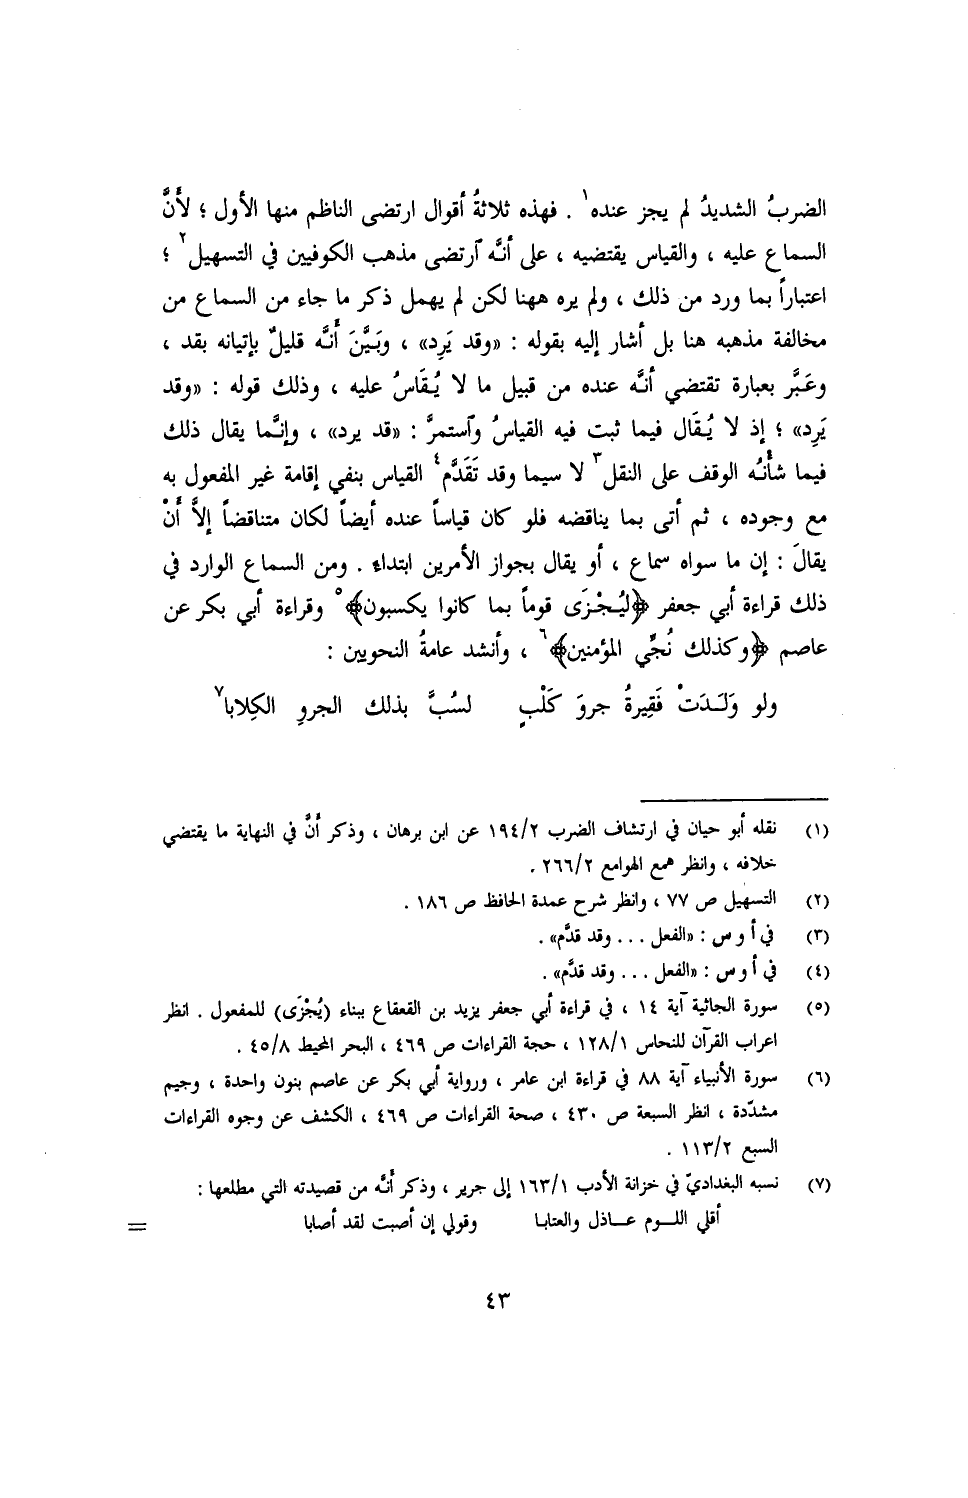 الضربُ الشديدُ لم يجز عنده١ . فهذه ثلاثةُ أقوال ارتضى الناظم منها الأول ؛ لأَنَّ
السماع عليه ، والقياس يقتضيه ، على أنَّه ٱرتضى مذهب الكوفيين في التسهيل٢ ؛
اعتباراً بما ورد من ذلك ، ولم يره ههنا لكن لم يهمل ذكر ما جاء من السماع من
مخالفة مذهبه هنا بل أشار إليه بقوله : «وقد يَرِد» ، وبَيَّنَ أَنَّه قليلٌ بإتيانه بقد ،
وعَبَّر بعبارة تقتضي أنَّه عنده من قبيل ما لا يُقَاسُ عليه ، وذلك قوله : «وقد
يَرِد» ؛ إذ لا يُقَال فيما ثبت فيه القياسُ وٱستمرَّ : «قد يرد» ، وإنَّما يقال ذلك
فيما شأْنُه الوقف على النقل٣ لا سيما وقد تَقَدَّم٤ القياس بنفي إقامة غير المفعول به
مع وجوده ، ثم أتى بما يناقضه فلو كان قياساً عنده أيضاً لكان متناقضاً إلاَّ أَنْ
يقالَ : إن ما سواه سماع ، أو يقال بجواز الأمرين ابتداء . ومن السماع الوارد في
ذلك قراءة أبي جعفر ﴿ليُجْزَى قوماً بما كانوا يكسبون﴾٥ وقراءة أبي بكر عن
عاصم ﴿وكذلك نُجِّي المؤمنين﴾٦ ، وأنشد عامةُ النحويين :
ولو وَلَدَتْ فَقِيرةُ جروَ كَلْبٍ لسُبَّ بذلك الجروِ الكِلابا٧
(١) نقله أبو حيان في ارتشاف الضرب ١٩٤/٢ عن ابن برهان ، وذكر أَنَّ في النهاية ما يقتضي
خلافه ، وانظر همع الهوامع ٢٦٦/٢ .
(٢) التسهيل ص ٧٧ ، وانظر شرح عمدة الحافظ ص ١٨٦ .
(٣) في أ و س : «الفعل ... وقد قدَّم» .
(٤) في أ و س : «الفعل ... وقد قدَّم» .
(٥) سورة الجاثية آية ١٤ ، في قراءة أبي جعفر يزيد بن القعقاع ببناء (يُجْزَى) للمفعول . انظر
اعراب القرآن للنحاس ١٢٨/١ ، حجة القراءات ص ٤٦٩ ، البحر المحيط ٤٥/٨ .
(٦) سورة الأنبياء آية ٨٨ في قراءة ابن عامر ، ورواية أبي بكر عن عاصم بنون واحدة ، وجيم
مشدّدة ، انظر السبعة ص ٤٣٠ ، صحة القراءات ص ٤٦٩ ، الكشف عن وجوه القراءات
السبع ١١٣/٢ .
(٧) نسبه البغداديّ في خزانة الأدب ١٦٣/١ إلى جرير ، وذكر أَنَّه من قصيدته التي مطلعها :
أقلي اللوم عاذل والعتابا وقولي إن أصبت لقد أصابا =
٤٣